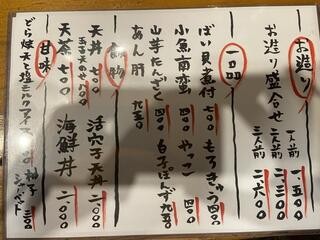 お造り
お造り盛合せ
一人前 一、五〇〇
二人前 二、三〇〇
三人前 二、六〇〇
一品
ばい貝煮付 七〇〇
もろきゅう 四〇〇
小魚南蛮 四〇〇
やっこ 四〇〇
山芋たんざく
白子ぽんず 九五〇
あん肝 九五〇
飯物
天丼 七〇〇
玉子天のせ 八〇〇
活穴子天丼 二、〇〇〇
天茶 七〇〇
海鮮丼 二、〇〇〇
甘味
どら焼天と塩ミルクアイス
柚子シャーベット 三〇〇